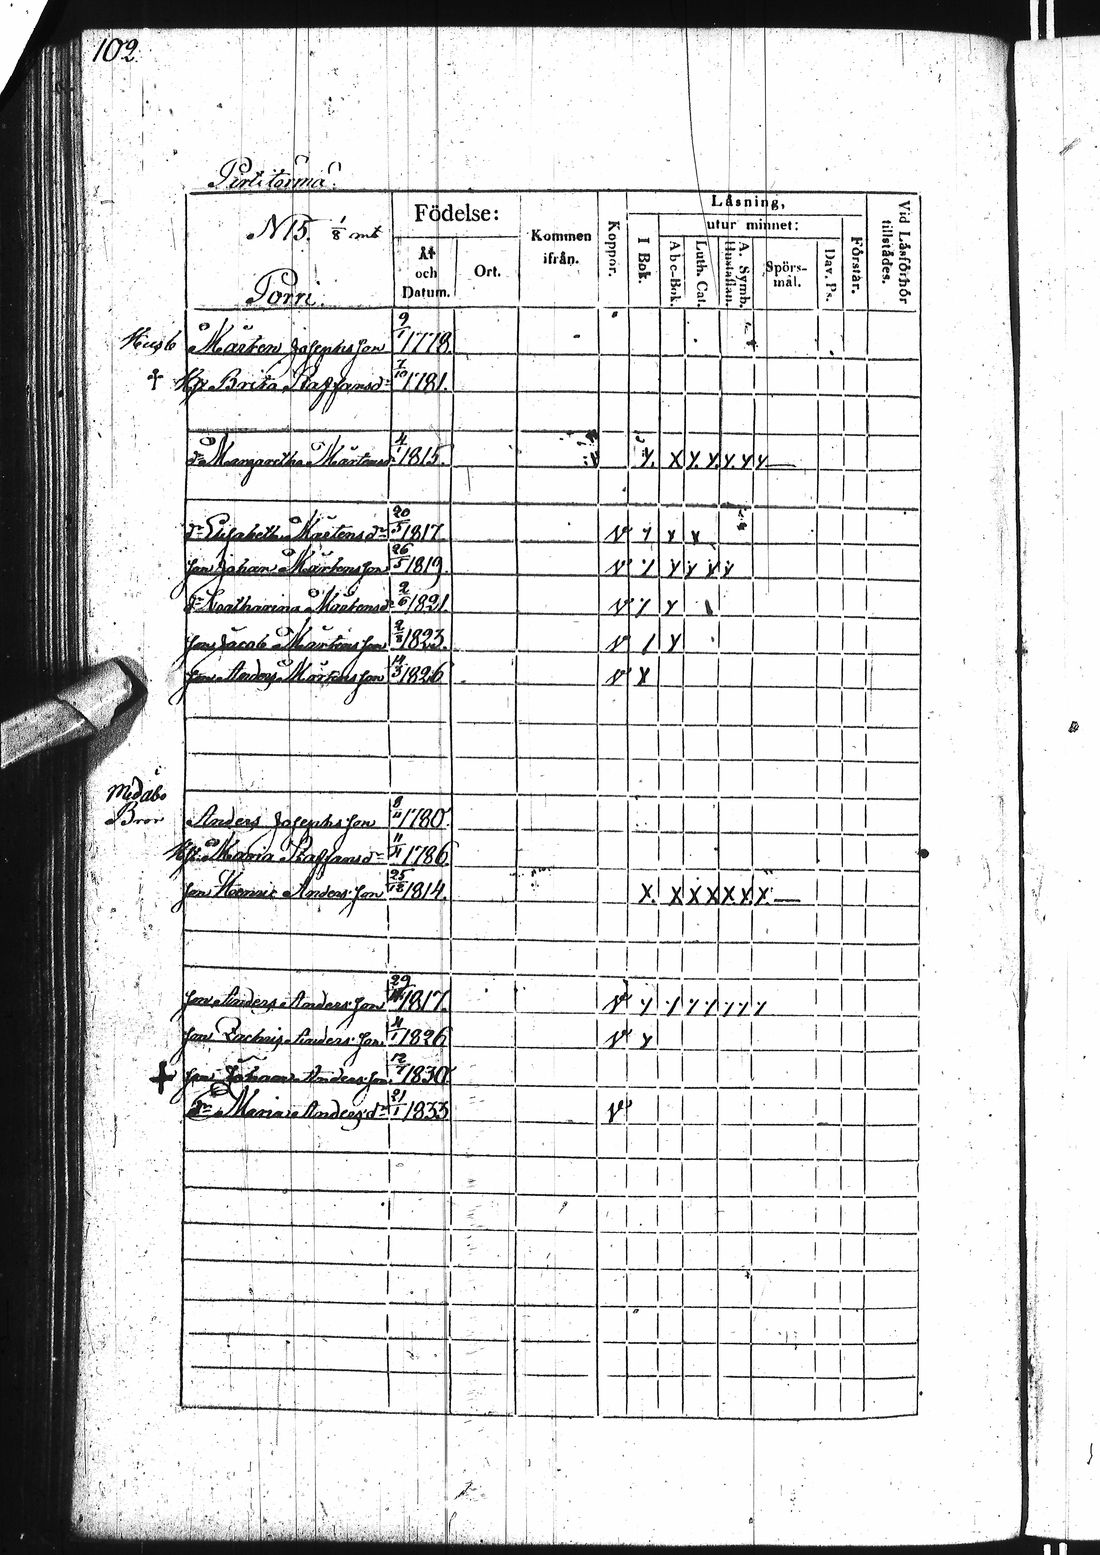 102.
Pirttitörmä.
N 15. 1/8 mtl
Porri.
Födelse:
År och Datum.
Ort.
Kommen ifrån.
Koppor.
Läsning,
I Bok.
utur minnet:
Abc-Bok.
Luth. Cat.
A. Symb. Hustaflan.
Spörsmål.
Dav. Ps.
Förstår.
Vid Läsförhör tillstädes.
Husb Mårten Josephsson 9/1 1778.
† H. Brita Staffansdr 7/10 1781.
dr Margaretha Mårtensdr 4/1 1815.
dr Elisabeth Mårtensdr 20/5 1817.
Son Johan Mårtensson 26/5 1819.
dr Catharina Mårtensdr 2/6 1821
Son Jacob Mårtensson 2/8 1823.
Son Anders Mårtensson 14/3 1826
Medåbo
Bror Anders Josephsson 8/11 1780.
H. Maria Staffansdr 11/11 1786
Son Henric Andersson 25/12 1814.
Son Anders Andersson 29/ 1817.
Son Zachris Andersson 4/1 1826
† Son Johan Andersson 12/7 1830
dr Maria Andersdr 21/1 1833